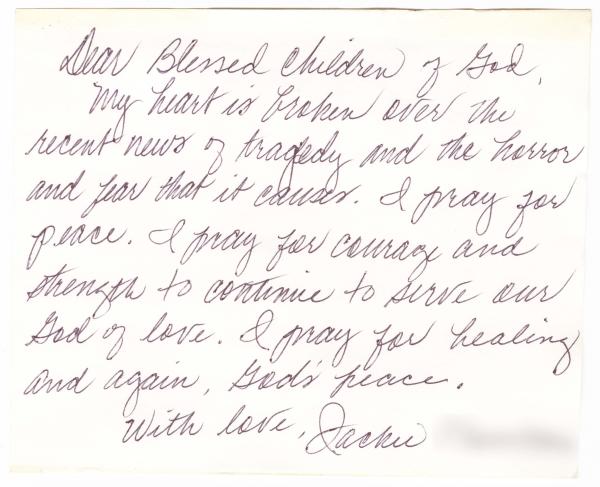 Dear Blessed Children of God,
My heart is broken over the
recent news of tragedy and the horror
and fear that it causes. I pray for
peace. I pray for courage and
strength to continue to serve our
God of love. I pray for healing
and again, God's peace.
With love, Jackie